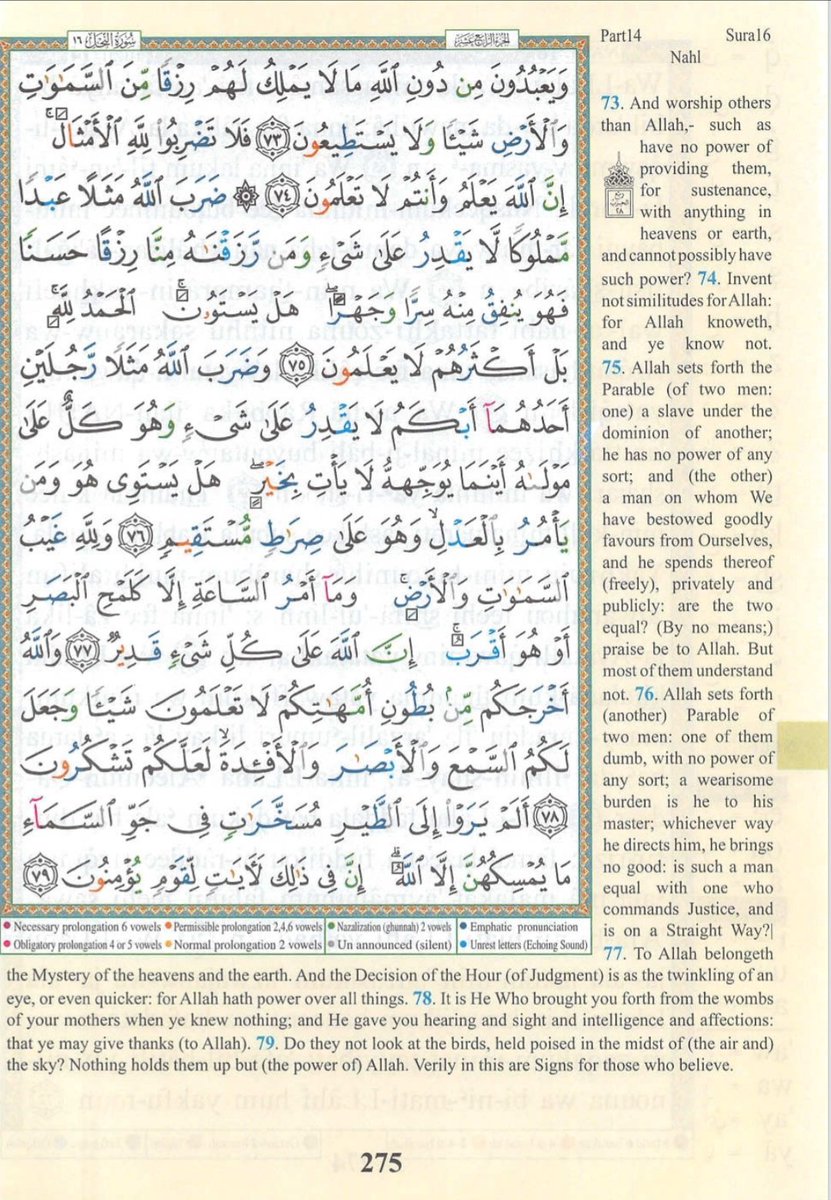 سورة النحل ١٦
الجزء الرابع عشر
Part14 Sura16
Nahl
وَيَعْبُدُونَ مِن دُونِ ٱللَّهِ مَا لَا يَمْلِكُ لَهُمْ رِزْقًا مِّنَ ٱلسَّمَـٰوَٰتِ
وَٱلْأَرْضِ شَيْـًٔا وَلَا يَسْتَطِيعُونَ ﴿٧٣﴾ فَلَا تَضْرِبُوا۟ لِلَّهِ ٱلْأَمْثَالَ ۚ
إِنَّ ٱللَّهَ يَعْلَمُ وَأَنتُمْ لَا تَعْلَمُونَ ﴿٧٤﴾ ۞ ضَرَبَ ٱللَّهُ مَثَلًا عَبْدًا
مَّمْلُوكًا لَّا يَقْدِرُ عَلَىٰ شَىْءٍ وَمَن رَّزَقْنَـٰهُ مِنَّا رِزْقًا حَسَنًا
فَهُوَ يُنفِقُ مِنْهُ سِرًّا وَجَهْرًا ۖ هَلْ يَسْتَوُۥنَ ۚ ٱلْحَمْدُ لِلَّهِ ۚ
بَلْ أَكْثَرُهُمْ لَا يَعْلَمُونَ ﴿٧٥﴾ وَضَرَبَ ٱللَّهُ مَثَلًا رَّجُلَيْنِ
أَحَدُهُمَآ أَبْكَمُ لَا يَقْدِرُ عَلَىٰ شَىْءٍ وَهُوَ كَلٌّ عَلَىٰ
مَوْلَىٰهُ أَيْنَمَا يُوَجِّههُّ لَا يَأْتِ بِخَيْرٍ ۖ هَلْ يَسْتَوِى هُوَ وَمَن
يَأْمُرُ بِٱلْعَدْلِ ۙ وَهُوَ عَلَىٰ صِرَٰطٍ مُّسْتَقِيمٍ ﴿٧٦﴾ وَلِلَّهِ غَيْبُ
ٱلسَّمَـٰوَٰتِ وَٱلْأَرْضِ ۚ وَمَآ أَمْرُ ٱلسَّاعَةِ إِلَّا كَلَمْحِ ٱلْبَصَرِ
أَوْ هُوَ أَقْرَبُ ۚ إِنَّ ٱللَّهَ عَلَىٰ كُلِّ شَىْءٍ قَدِيرٌ ﴿٧٧﴾ وَٱللَّهُ
أَخْرَجَكُم مِّنۢ بُطُونِ أُمَّهَـٰتِكُمْ لَا تَعْلَمُونَ شَيْـًٔا وَجَعَلَ
لَكُمُ ٱلسَّمْعَ وَٱلْأَبْصَـٰرَ وَٱلْأَفْـِٔدَةَ ۙ لَعَلَّكُمْ تَشْكُرُونَ
﴿٧٨﴾ أَلَمْ يَرَوْا۟ إِلَى ٱلطَّيْرِ مُسَخَّرَٰتٍ فِى جَوِّ ٱلسَّمَآءِ
مَا يُمْسِكُهُنَّ إِلَّا ٱللَّهُ ۗ إِنَّ فِى ذَٰلِكَ لَـَٔايَـٰتٍ لِّقَوْمٍ يُؤْمِنُونَ ﴿٧٩﴾
Necessary prolongation 6 vowels Permissible prolongation 2,4,6 vowels Nazalization (ghunnah) 2 vowels Emphatic pronunciation
Obligatory prolongation 4 or 5 vowels Normal prolongation 2 vowels Un announced (silent) Unrest letters (Echoing Sound)
73. And worship others
than Allah,- such as
have no power of
providing them,
for sustenance,
with anything in
heavens or earth,
and cannot possibly have
such power? 74. Invent
not similitudes for Allah:
for Allah knoweth,
and ye know not.
75. Allah sets forth the
Parable (of two men:
one) a slave under the
dominion of another;
he has no power of any
sort; and (the other)
a man on whom We
have bestowed goodly
favours from Ourselves,
and he spends thereof
(freely), privately and
publicly: are the two
equal? (By no means;)
praise be to Allah. But
most of them understand
not. 76. Allah sets forth
(another) Parable of
two men: one of them
dumb, with no power of
any sort; a wearisome
burden is he to his
master; whichever way
he directs him, he brings
no good: is such a man
equal with one who
commands Justice, and
is on a Straight Way?|
77. To Allah belongeth
the Mystery of the heavens and the earth. And the Decision of the Hour (of Judgment) is as the twinkling of an
eye, or even quicker: for Allah hath power over all things. 78. It is He Who brought you forth from the wombs
of your mothers when ye knew nothing; and He gave you hearing and sight and intelligence and affections:
that ye may give thanks (to Allah). 79. Do they not look at the birds, held poised in the midst of (the air and)
the sky? Nothing holds them up but (the power of) Allah. Verily in this are Signs for those who believe.
275